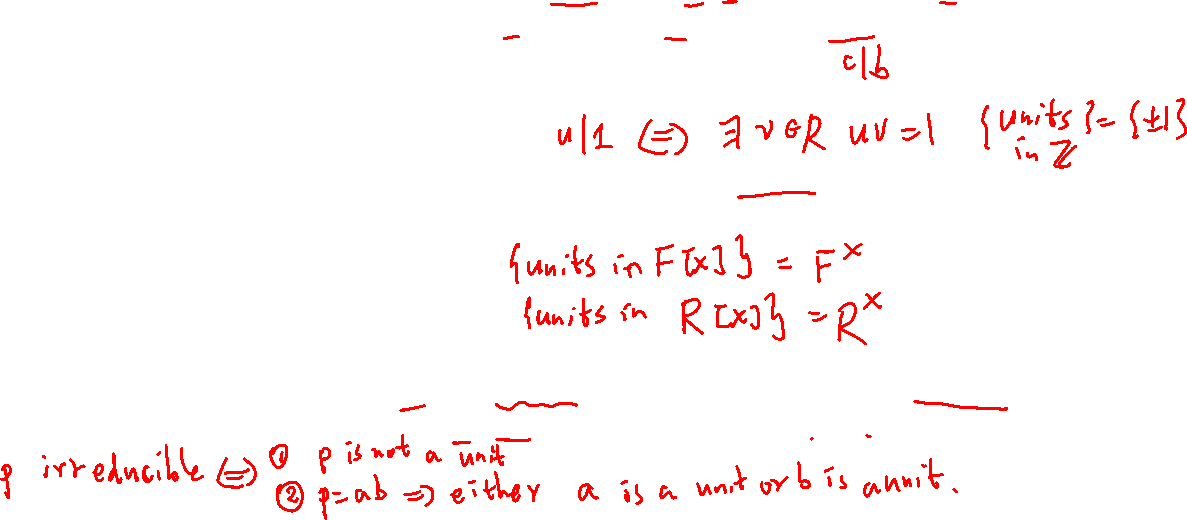 c|b
u|1 ⇔ ∃ v∈R uv=1 {units in ℤ} = {±1}
{units in F[x]} = F^×
{units in R[x]} = R^×
p irreducible ⇔ ① p is not a unit
② p=ab ⇒ either a is a unit or b is a unit.